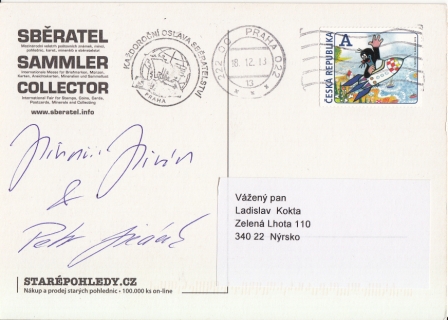 SBĚRATEL
Mezinárodní veletrh poštovních známek, mincí,
pohlednic, karet, minerálů a sběratelství
SAMMLER
Internationale Messe für Briefmarken, Münzen,
Karten, Ansichtskarten, Mineralien und Sammeltum
COLLECTOR
International Fair for Stamps, Coins, Cards,
Postcards, Minerals and Collecting
www.sberatel.info
KAŽDOROČNÍ OSLAVA SBĚRATELSTVÍ
PRAHA
PRAHA 022
18.12.13
A
ČESKÁ REPUBLIKA
&
Petr
Vážený pan
Ladislav Kokta
Zelená Lhota 110
340 22 Nýrsko
STARÉPOHLEDY.CZ
Nákup a prodej starých pohlednic - 100.000 ks on-line